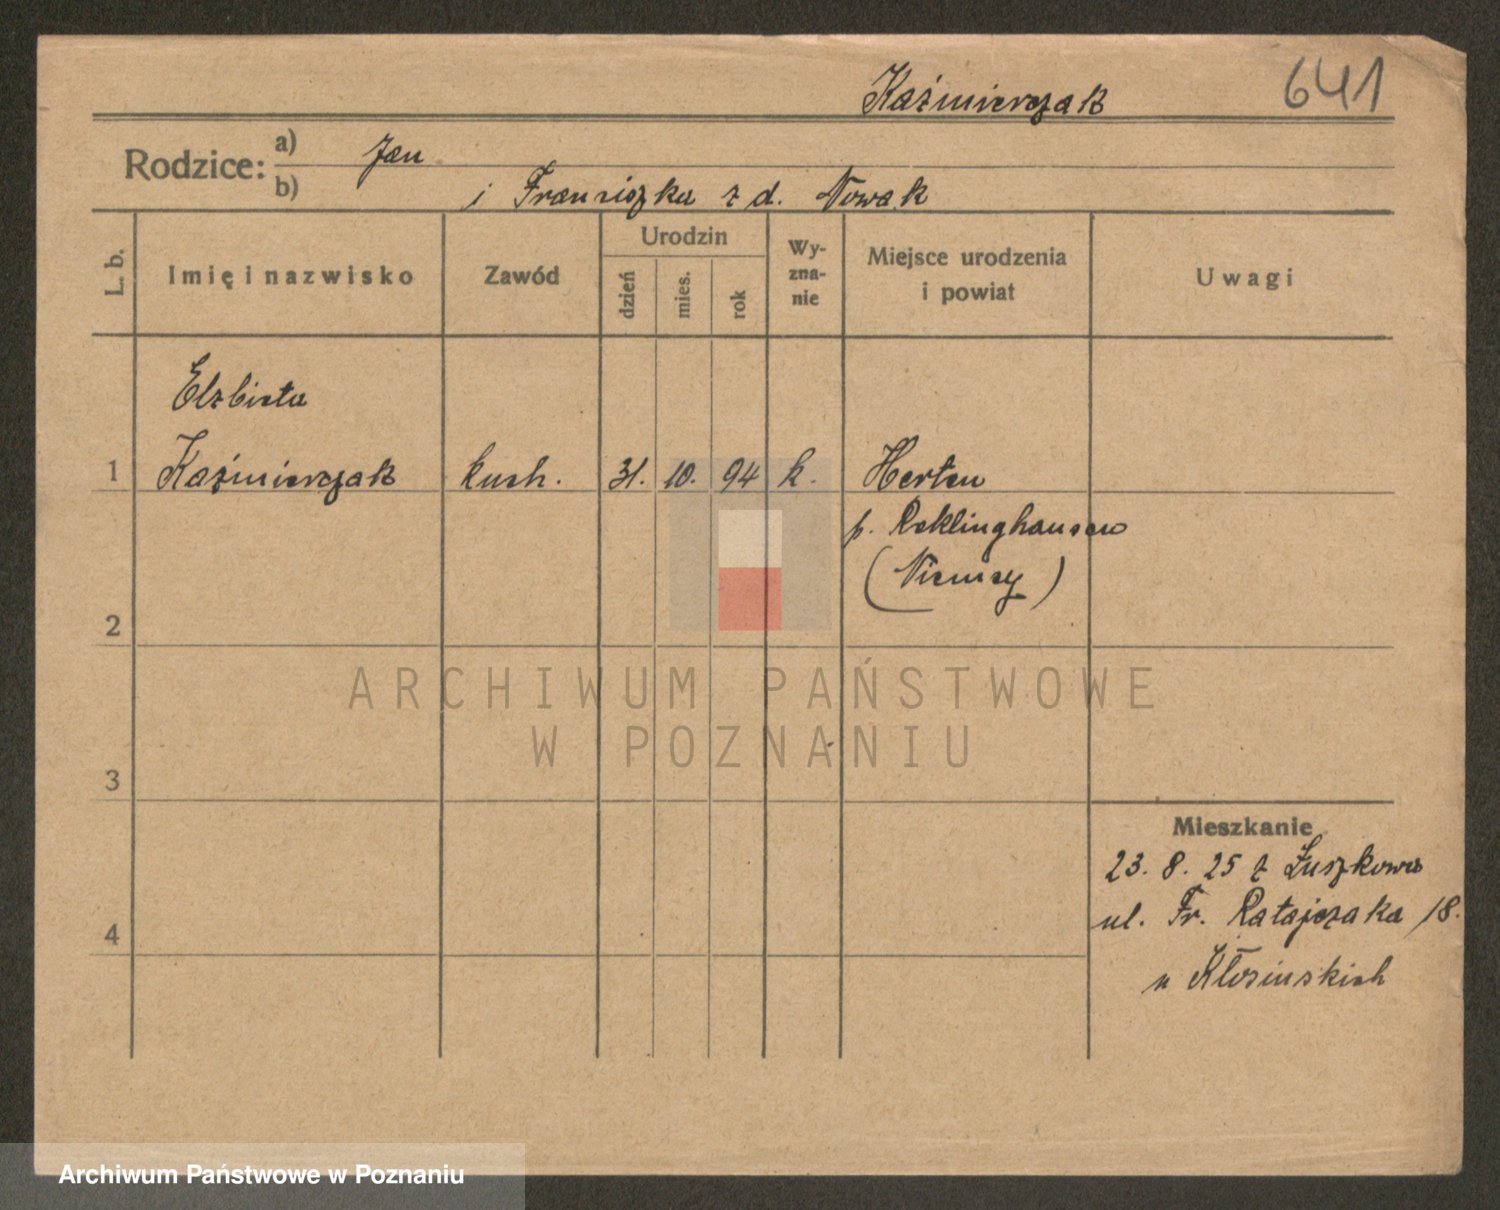 Kaźmierczak 641
Rodzice:
a) Jan
b) i Franciszka z d. Nowak
L. b.
Imię i nazwisko
Zawód
Urodzin
dzień
mies.
rok
Wy-
zna-
nie
Miejsce urodzenia
i powiat
Uwagi
Elżbieta
1 Kaźmierczak kuch. 31. 10. 94 k. Herten
p. Reklinghausen
(Niemcy)
2
3
4
ARCHIWUM PAŃSTWOWE
W POZNANIU
Mieszkanie
23. 8. 25 z Łuszkowa
ul. Fr. Ratajczaka 18.
u Kłosińskich
Archiwum Państwowe w Poznaniu